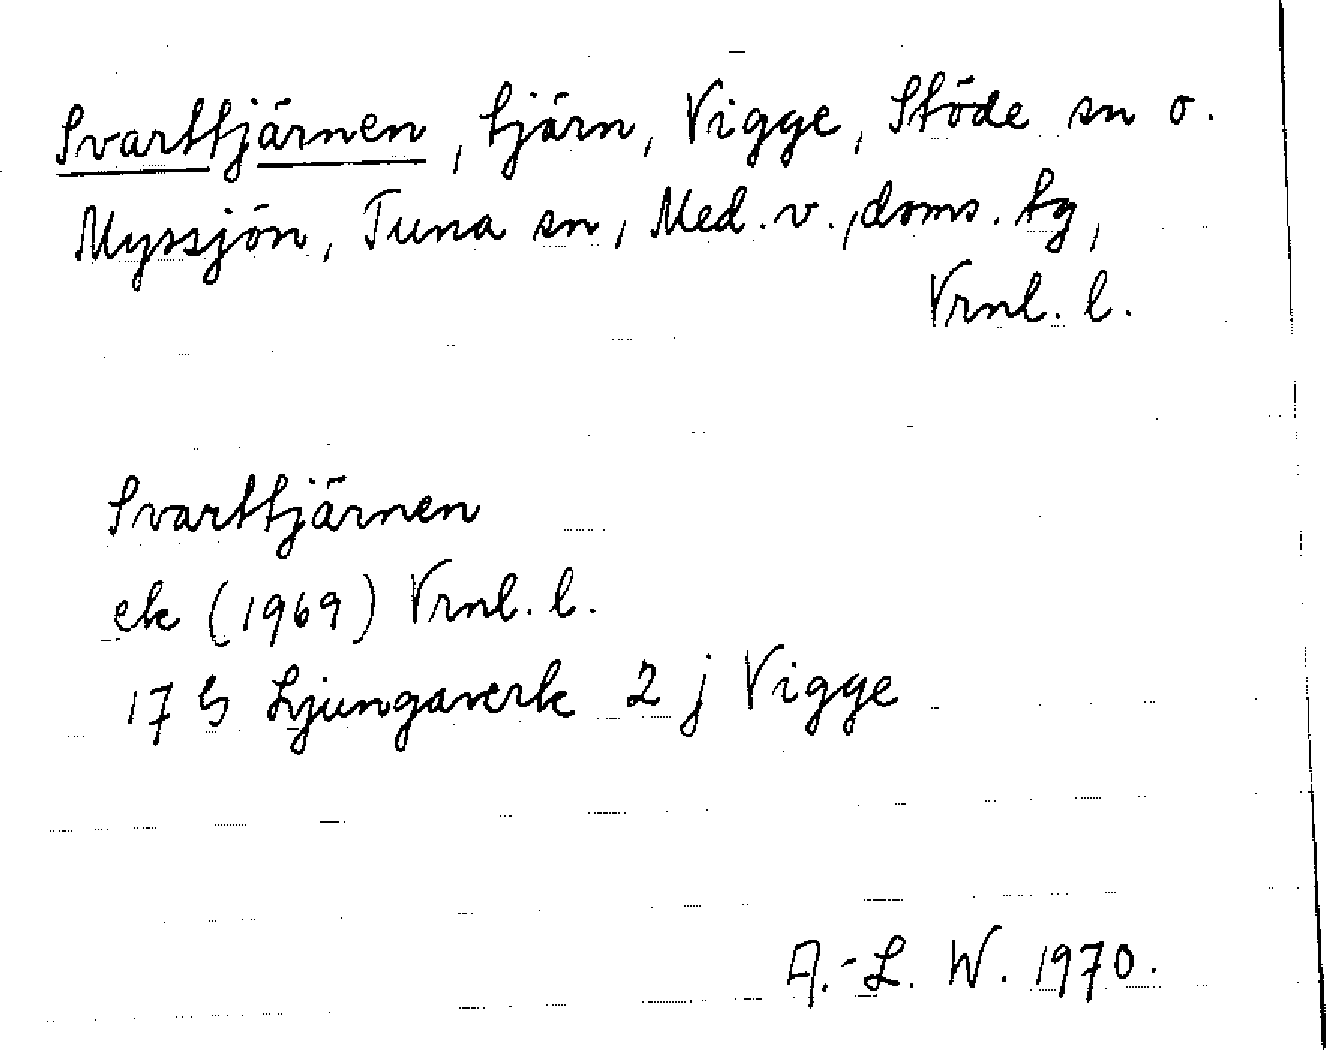 Svarttjärnen, tjärn, Vigge, Stöde sn o.
Myssjön, Tuna sn, Med. v., doms. tg,
Vrnl. l.
Svarttjärnen
ek (1969) Vrnl. l.
17 G Ljungaverk 2 j Vigge
A.-L. W. 1970.